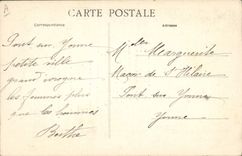 CARTE POSTALE
Correspondance
Adresse
Pont sur Yonne
petite ville
grand ivrogne
les femmes plus
que les hommes
Berthe
Mlle Marguerite
Maçon de St Hilaire
Pont sur Yonne
Yonne